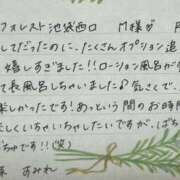 フォレスト池袋西口 M様が
してだったのに、たくさんオプション追
嬉しすぎました!!ローション風呂が
て長風呂しちゃいました♪気さくで、
楽しかったです!あっという間のお時
くちゃいちゃしたいですが、ばち
ちゃです!!(笑)
すみれ